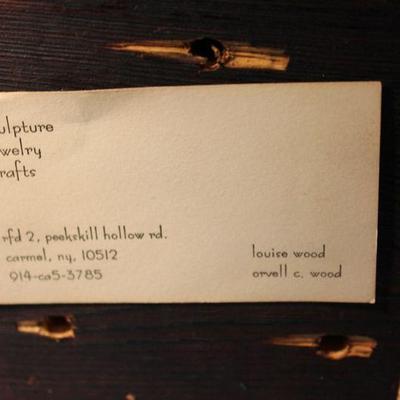 ulpture
welry
rafts
rfd 2, peekskill hollow rd.
carmel, ny, 10512
914-ca5-3785
louise wood
orvell c. wood